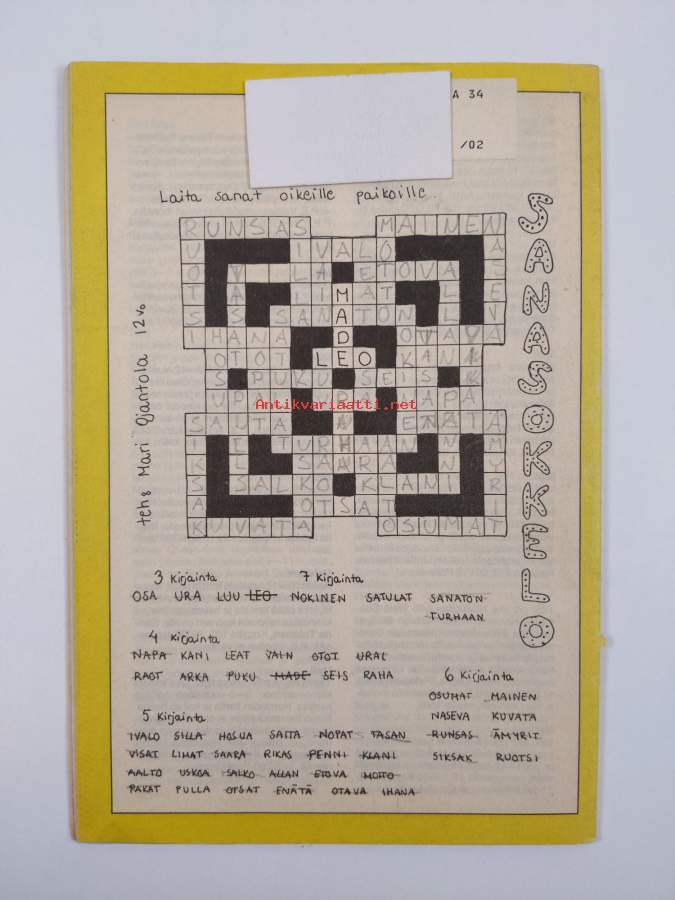 A 34
/02
Laita sanat oikeille paikoille.
SANASOKKELO
teht Mari Ojantola 12 v.
RUNSAS
MAINEN
IVALO
ETOVA
MADE
SANATON
IHANA
OTAVA
OTOT
LEO
KANI
PUKU
SEIS
Antikvariaatti.net
NAPA
ENÄTÄ
TURHAAN
SAARA
SALKO
KLANI
OTSAT
KUVATA
OSUMAT
3 Kirjainta
OSA URA LUU LEO
7 Kirjainta
NOKINEN SATULAT SANATON
TURHAAN
4 Kirjainta
NAPA KANI LEAT VAIN OTOT URAL
RAOT ARKA PUKU MADE SEIS RAHA
6 Kirjainta
OSUMAT MAINEN
NASEVA KUVATA
RUNSAS ÄMYRIT
SIKSAK RUOTSI
5 Kirjainta
IVALO SILLA HOSUA SAITA NOPAT TASAN
VISAT LIMAT SAARA RIKAS PENNI KLANI
AALTO USKOA SALKO ALLAN ETOVA MOTTO
PAKAT PULLA OTSAT ENÄTÄ OTAVA IHANA